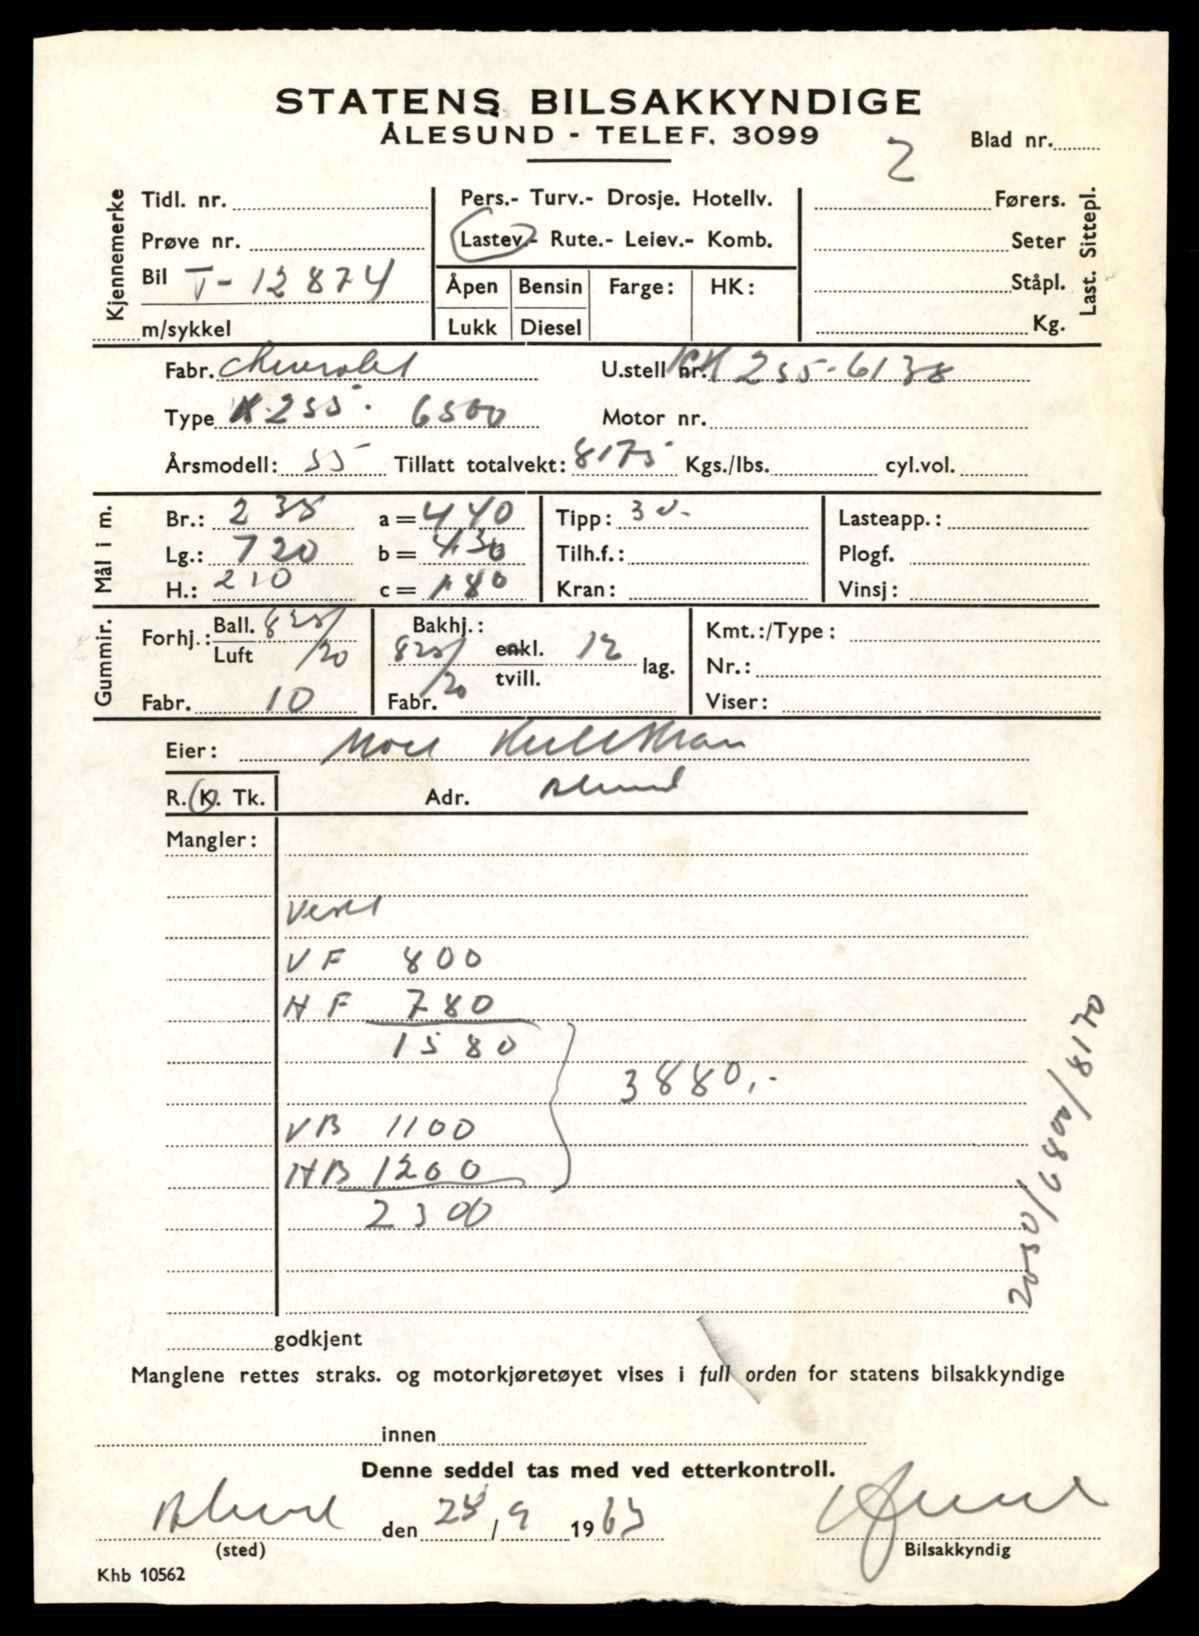 STATENS BILSAKKYNDIGE
ÅLESUND - TELEF. 3099
2
Blad nr.
Kjennemerke
Tidl. nr.
Prøve nr.
Bil T-12874
m/sykkel
Pers.- Turv.- Drosje. Hotellv.
Lastev.- Rute.- Leiev.- Komb.
Åpen Bensin Farge: HK:
Lukk Diesel
Førers.
Seter
Ståpl.
Kg.
Last. Sittepl.
Fabr. Chevrolet U.stell nr. 255-6138
Type 255. 6500 Motor nr.
Årsmodell: 55 Tillatt totalvekt: 8175 Kgs./lbs. cyl.vol.
Mål i m.
Br.: 238 a = 440 Tipp: 3 v- Lasteapp.:
Lg.: 720 b = 430 Tilh.f.: Plogf.
H.: 210 c = 180 Kran: Vinsj:
Gummir.
Forhj.: Ball. 825/20
Luft
Fabr. 10
Bakhj.:
825/20 enkl. 12 lag.
tvill.
Fabr.
Kmt.:/Type:
Nr.:
Viser:
Eier:
R. K. Tk. Adr.
Mangler:
Vexel
VF 800
HF 780
1580
3880,-
VB 1100
HB 1200
2300
2050/6800/8170
godkjent
Manglene rettes straks. og motorkjøretøyet vises i full orden for statens bilsakkyndige
innen
Denne seddel tas med ved etterkontroll.
den 25/9 1963
(sted)
Bilsakkyndig
Khb 10562